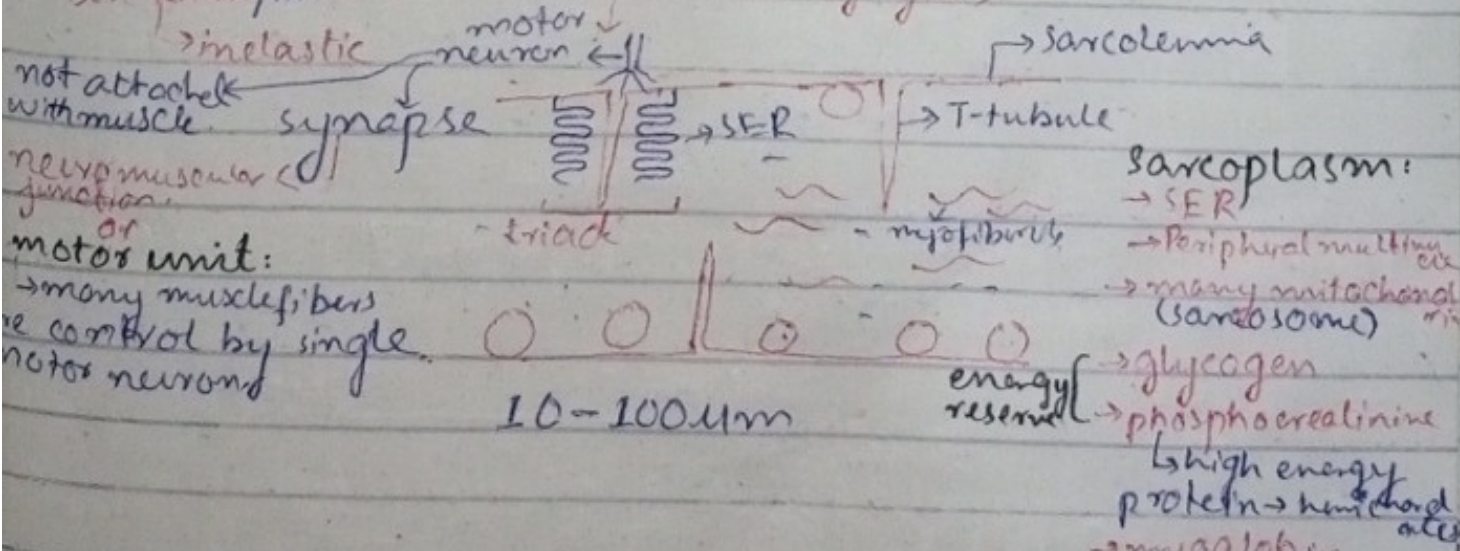 →inelastic
motor
neuron
not attached
with muscle
synapse
neuromuscular
junction
or
motor unit:
→many musclefibers
re control by single
motor neurond
→SER
-triack
→sarcolemma
→T-tubule
10-100um
sarcoplasm:
→SER
→Peripheral
→many mitochond
(sarcosome)
energy
reserve
→glycogen
→phosphocreatinine
↳high energy
protein→